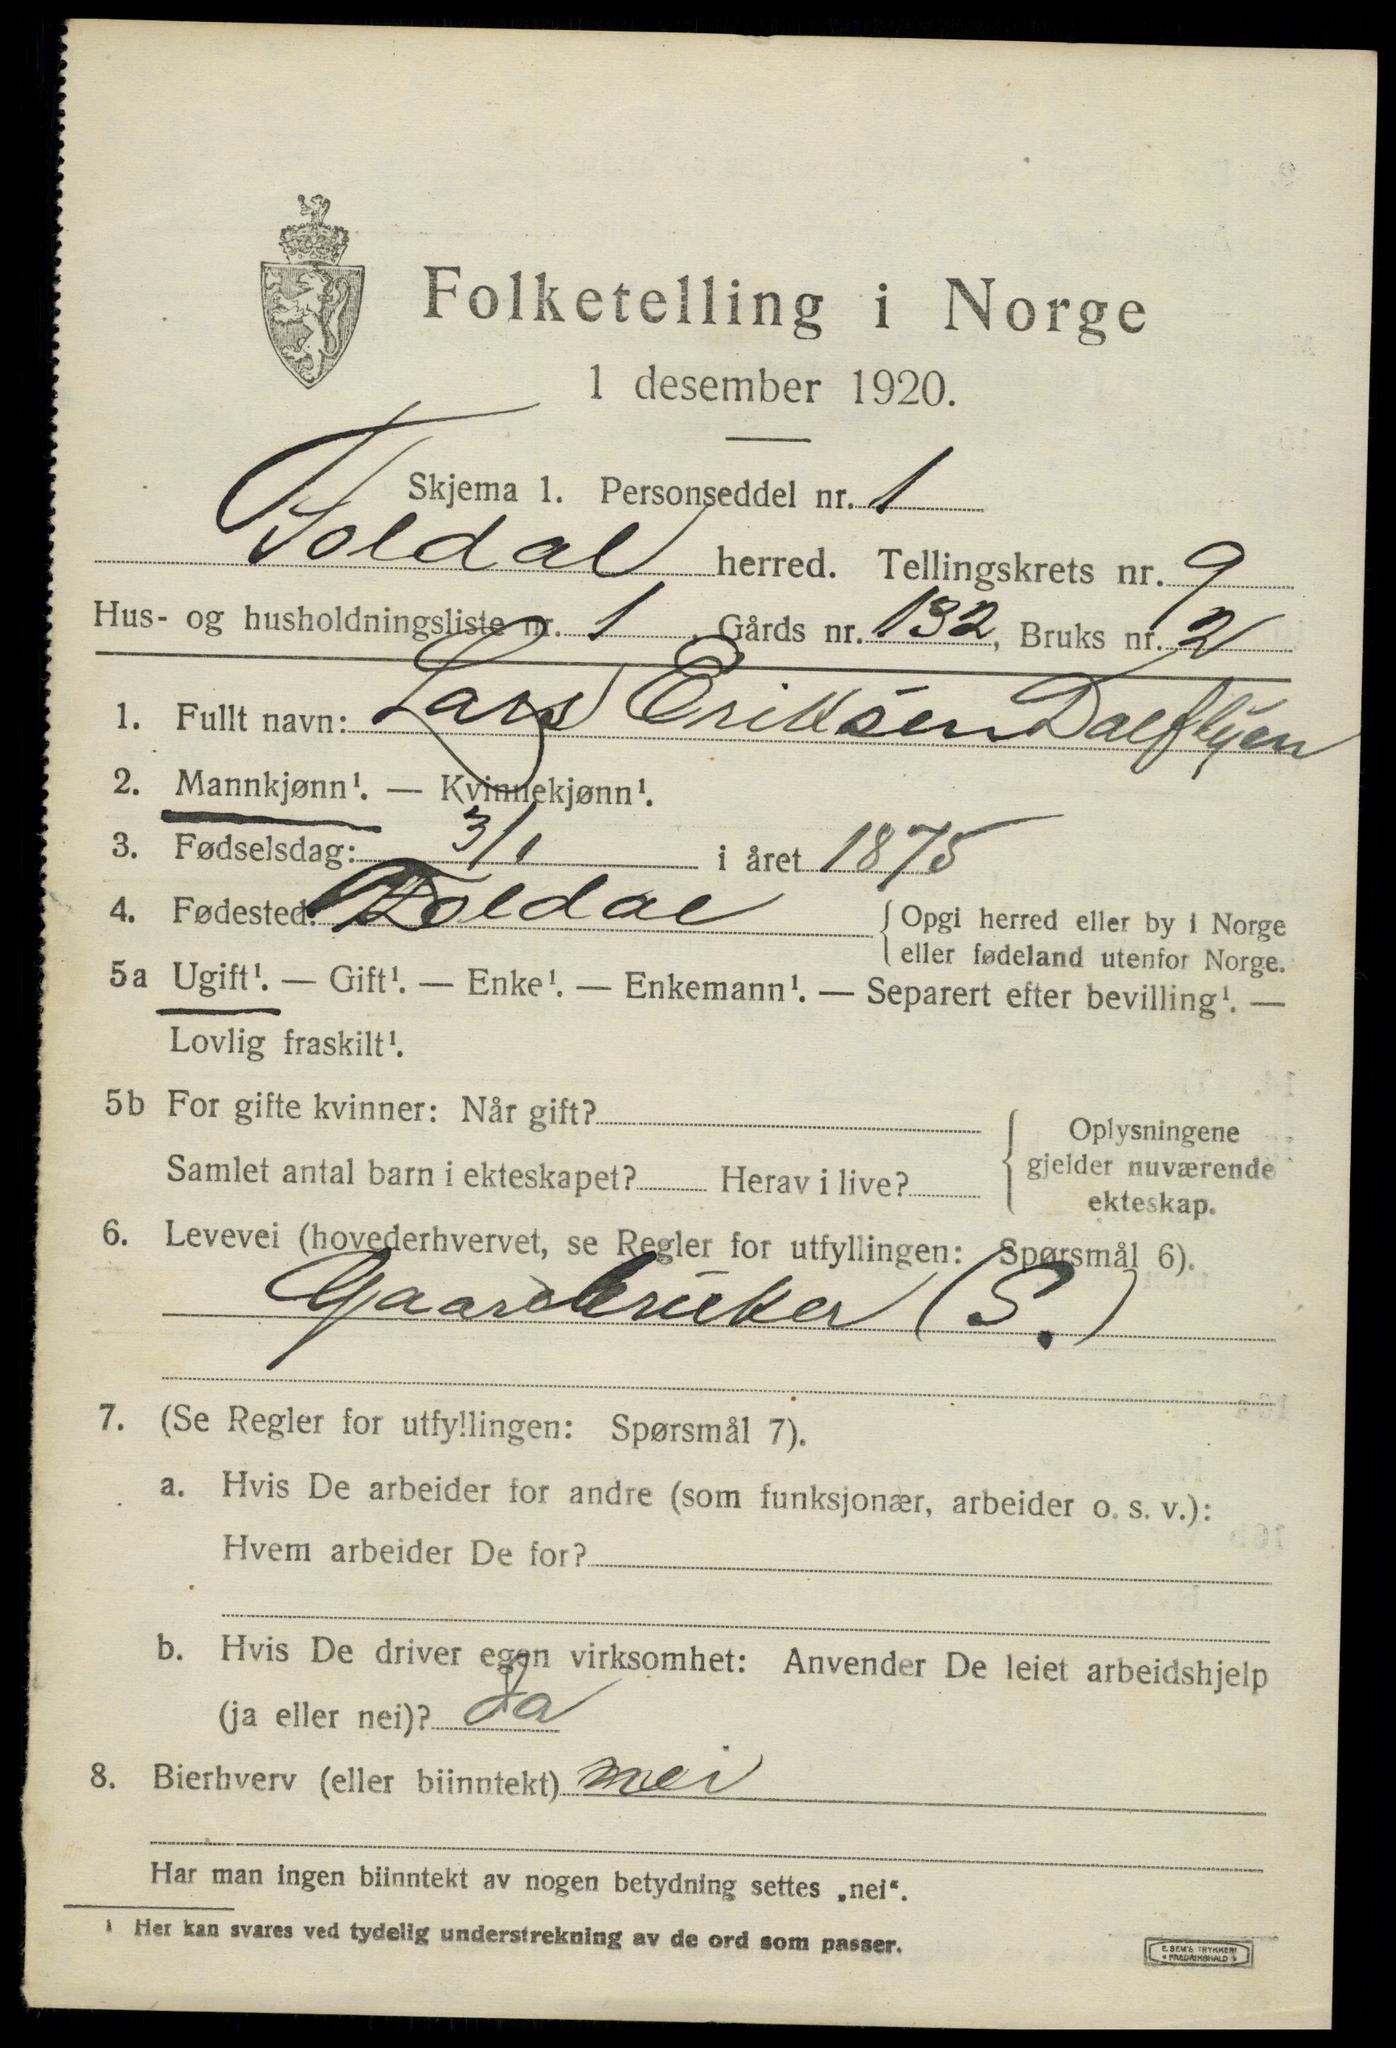 Folketelling i Norge
1 desember 1920.
Skjema 1. Personseddel nr. 1
Foldal herred. Tellingskrets nr. 9
Hus- og husholdningsliste nr. 1, Gårds nr. 132, Bruks nr. 2
1. Fullt navn: Lars Eriksen Dalflyen
2. Mannkjønn¹. — Kvinnekjønn¹.
3. Fødselsdag: 3/1 i året 1875
4. Fødested: Foldal {Opgi herred eller by i Norge
eller fødeland utenfor Norge.
5a Ugift¹. — Gift¹. — Enke¹. — Enkemann¹. — Separert efter bevilling¹. —
Lovlig fraskilt¹.
5b For gifte kvinner: Når gift?
Samlet antal barn i ekteskapet? Herav i live?
{Oplysningene
gjelder nuværende
ekteskap.
6. Levevei (hovederhvervet, se Regler for utfyllingen: Spørsmål 6).
Gaardbruker (S.)
7. (Se Regler for utfyllingen: Spørsmål 7).
a. Hvis De arbeider for andre (som funksjonær, arbeider o. s. v.):
Hvem arbeider De for?
b. Hvis De driver egen virksomhet: Anvender De leiet arbeidshjelp
(ja eller nei)? Ja
8. Bierhverv (eller biinntekt) nei
Har man ingen biinntekt av nogen betydning settes „nei“.
¹ Her kan svares ved tydelig understrekning av de ord som passer.
E. SEM'S TRYKKERI
FREDRIKSHALD